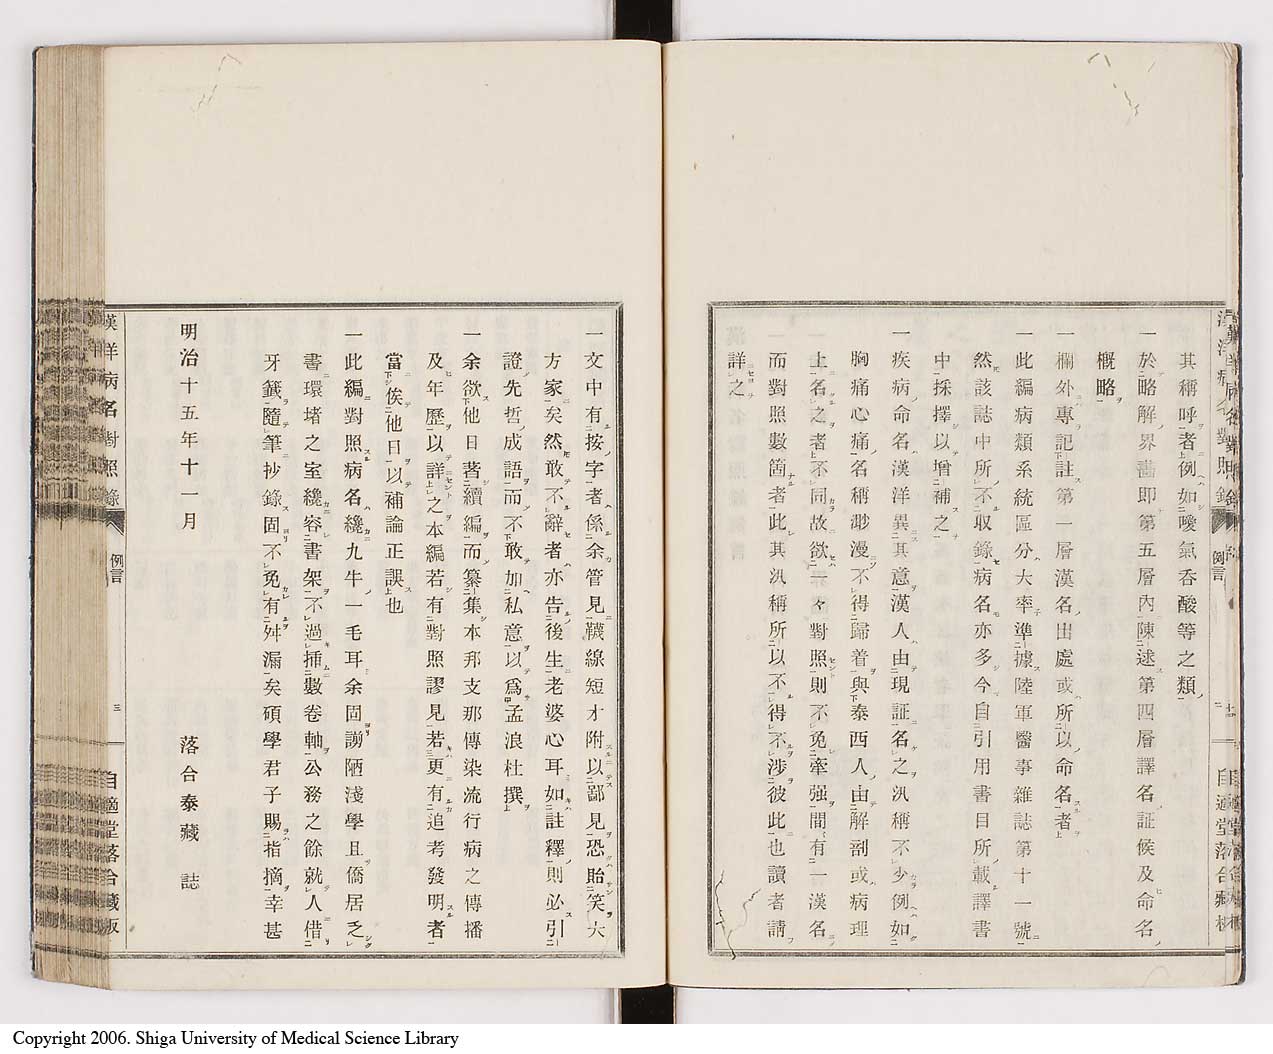 其稱呼者例如噯氣呑酸等之類
一於略解界畫即第五層內陳述第四層譯名証候及命名
概略
一欄外專記註第一層漢名出處或所以命名者
一此編病類系統區分大率準據陸軍醫事雜誌第十一號
然該誌中所不取錄病名亦多今自引用書目所載譯書
中採擇以增補之
一疾病命名漢洋異其意漢人由現証名之汎稱不少例如
胸痛心痛名稱渺漫不得歸着與泰西人由解剖或病理
上名之者不同故欲一々對照則不免牽强間有一漢名
而對照數箇者此其汎稱所以不得不涉彼此也讀者請
詳之
例言
自適堂落合藏板
一文中有按字者係余管見襪線短才附以鄙見恐貽笑大
方家矣然敢不辭者亦告後生老婆心耳如註釋則必引
證先哲成語而不敢加私意以爲孟浪杜撰
一余欲他日著續編而纂集本邦支那傳染流行病之傳播
及年歷以詳之本編若有對照謬見若更有追考發明者
當俟他日以補論正誤也
一此編對照病名纔九牛一毛耳余固謭陋淺學且僑居乏
書環堵之室纔容書架不過挿數卷軸公務之餘就人借
牙籤隨筆抄錄固不免有舛漏矣碩學君子賜指摘幸甚
明治十五年十一月
落合泰藏 誌
漢洋病名對照錄
例言
三
自適堂落合藏板
Copyright 2006. Shiga University of Medical Science Library